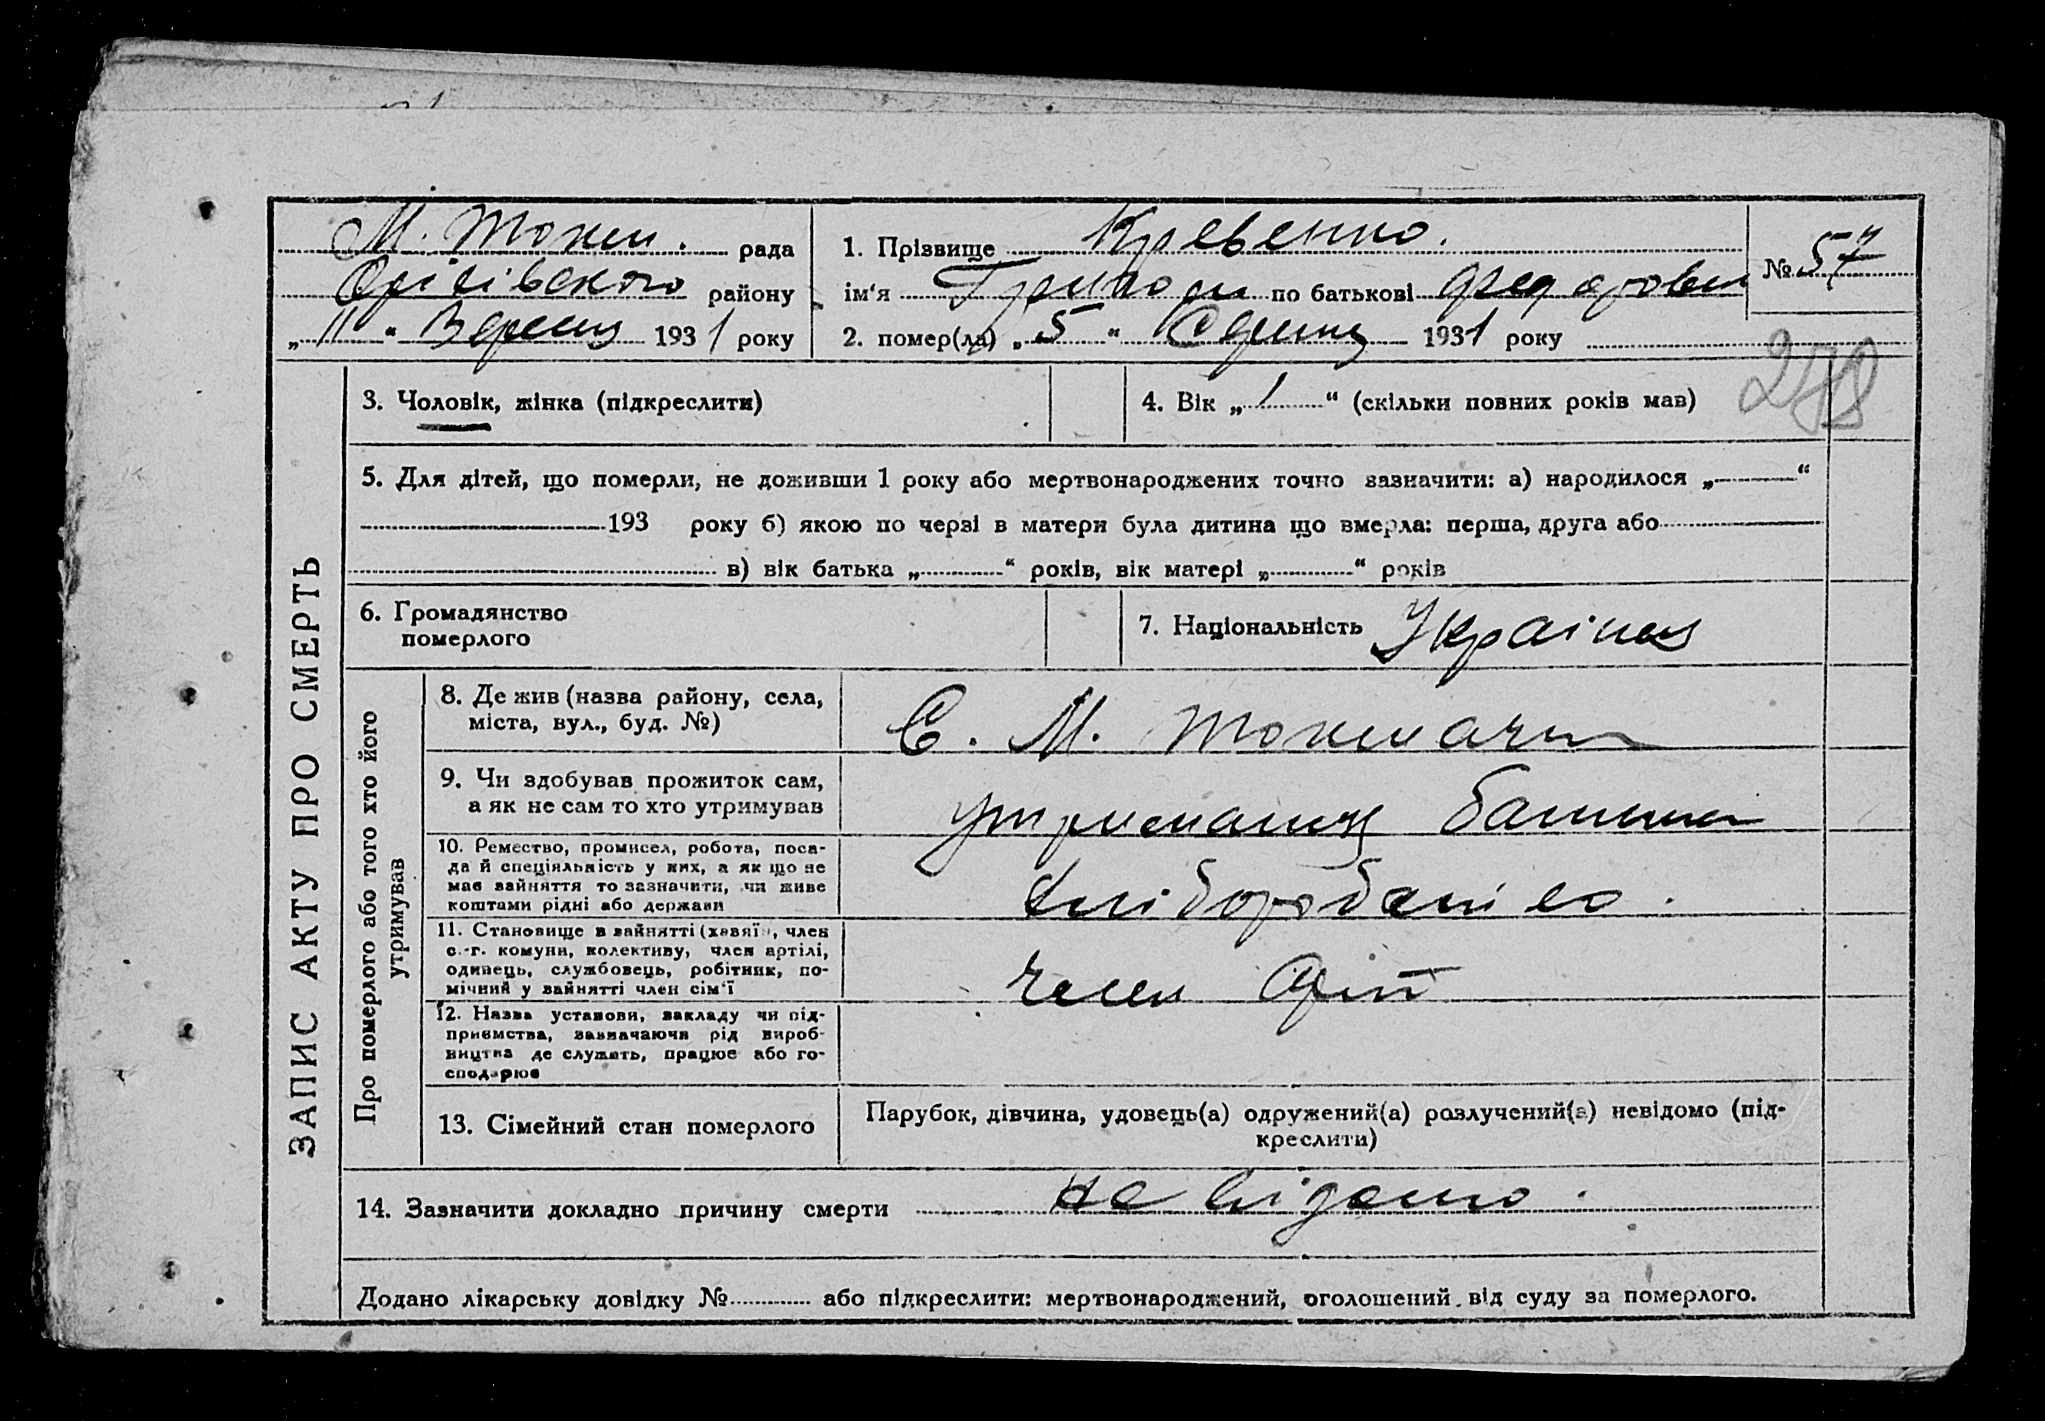 М. Токм. рада
Оріхівського району
„ 11 “ Вересня 1931 року
1. Прізвище Кревенко.
ім‘я по батькові Федорович
№ 57
2. помер(ла) „ 5 “ Серпня 1931 року
ЗАПИС АКТУ ПРО СМЕРТЬ
3. Чоловік, жінка (підкреслити)
4. Вік „ 1 “ (скільки повних років мав)
5. Для дітей, що померли, не доживши 1 року або мертвонароджених точно зазначити: а) народилося „ “
193 року б) якою по черзі в матери була дитина що вмерла: перша, друга або
в) вік батька „ “ років, вік матері „ “ років
6. Громадянство
померлого
7. Національність Українец
Про померлого або того хто його
утримував
8. Де жив (назва району, села,
міста, вул., буд. №)
С. М. Токмачка
9. Чи здобував прожиток сам,
а як не сам то хто утримував
утриманец батька
10. Ремество, промисел, робота, поса-
да й спеціяльність у них, а як що не
має зайняття то зазначити, чи живе
коштами рідні або держави
хліборобство.
11. Становище в зайнятті (хазяїн, член
с.-г. комуни, колективу, член артілі,
одинець, службовець, робітник, по-
мічний у зайнятті член сім‘ї
Член Арт
12. Назва установи, закладу чи під-
приємства, зазначаючи рід вироб-
ництва де служить, працює або го-
сподарює
13. Сімейний стан померлого
Парубок, дівчина, удовець(а) одружений(а) розлучений(а) невідомо (під-
креслити)
14. Зазначити докладно причину смерти не відомо.
Додано лікарську довідку № або підкреслити: мертвонароджений, оголошений від суду за померлого.